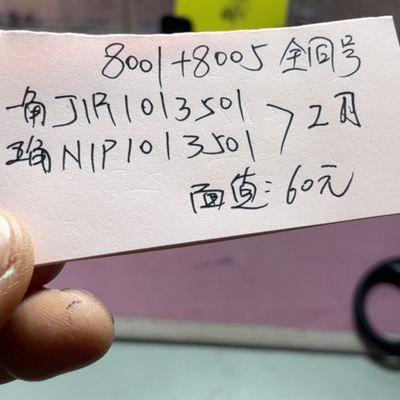 8001+8005 全同号
一角JIR1013501
五角NIP1013501 > 2刀
面值:60元